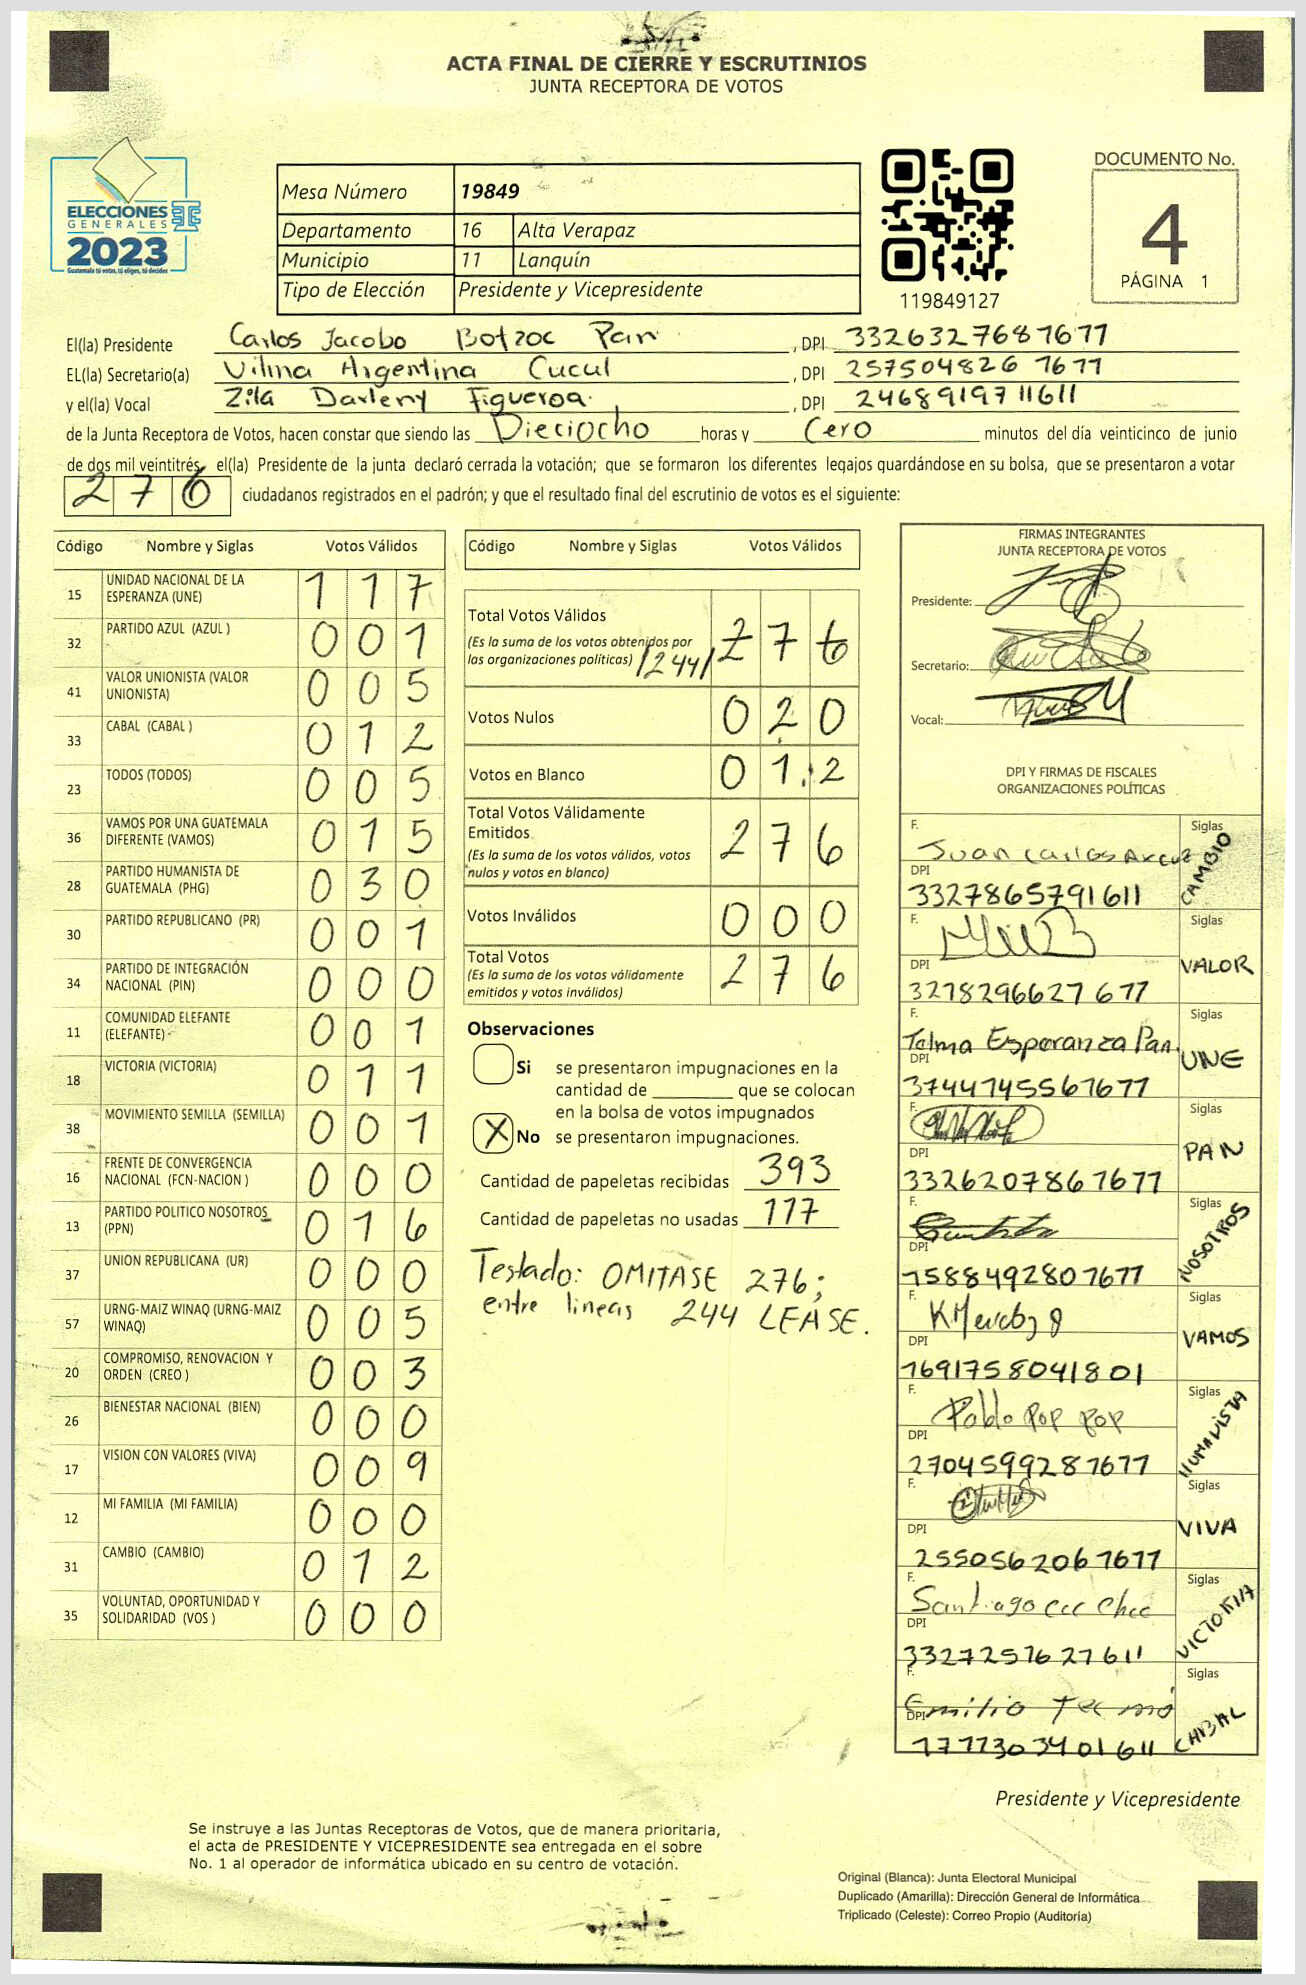 ACTA FINAL DE CIERRE Y ESCRUTINIOS
JUNTA RECEPTORA DE VOTOS
ELECCIONES
GENERALES
2023
Guatemala tú votas, tú eliges, tú decides
Mesa Número 19849
Departamento 16 Alta Verapaz
Municipio 11 Lanquín
Tipo de Elección Presidente y Vicepresidente
119849127
DOCUMENTO No.
4
PÁGINA 1
El(la) Presidente Carlos Jacobo Botzoc Pan , DPI 3326327687677
EL(la) Secretario(a) Vilma Argentina Cucul , DPI 257504826 7677
y el(la) Vocal Zila Darleny Figueroa. , DPI 2468919711611
de la Junta Receptora de Votos, hacen constar que siendo las Dieciocho horas y Cero minutos del día veinticinco de junio
de dos mil veintitrés, el(la) Presidente de la junta declaró cerrada la votación; que se formaron los diferentes legajos guardándose en su bolsa, que se presentaron a votar
276 ciudadanos registrados en el padrón; y que el resultado final del escrutinio de votos es el siguiente:
Código Nombre y Siglas Votos Válidos
15 UNIDAD NACIONAL DE LA ESPERANZA (UNE) 1 1 7
32 PARTIDO AZUL (AZUL ) 0 0 1
41 VALOR UNIONISTA (VALOR UNIONISTA) 0 0 5
33 CABAL (CABAL ) 0 1 2
23 TODOS (TODOS) 0 0 5
36 VAMOS POR UNA GUATEMALA DIFERENTE (VAMOS) 0 1 5
28 PARTIDO HUMANISTA DE GUATEMALA (PHG) 0 3 0
30 PARTIDO REPUBLICANO (PR) 0 0 1
34 PARTIDO DE INTEGRACIÓN NACIONAL (PIN) 0 0 0
11 COMUNIDAD ELEFANTE (ELEFANTE) 0 0 1
18 VICTORIA (VICTORIA) 0 1 1
38 MOVIMIENTO SEMILLA (SEMILLA) 0 0 1
16 FRENTE DE CONVERGENCIA NACIONAL (FCN-NACION ) 0 0 0
13 PARTIDO POLITICO NOSOTROS (PPN) 0 1 6
37 UNION REPUBLICANA (UR) 0 0 0
57 URNG-MAIZ WINAQ (URNG-MAIZ WINAQ) 0 0 5
20 COMPROMISO, RENOVACION Y ORDEN (CREO ) 0 0 3
26 BIENESTAR NACIONAL (BIEN) 0 0 0
17 VISION CON VALORES (VIVA) 0 0 9
12 MI FAMILIA (MI FAMILIA) 0 0 0
31 CAMBIO (CAMBIO) 0 1 2
35 VOLUNTAD, OPORTUNIDAD Y SOLIDARIDAD (VOS ) 0 0 0
Código Nombre y Siglas Votos Válidos
Total Votos Válidos
(Es la suma de los votos obtenidos por
las organizaciones políticas) /244/ 2 7 6
Votos Nulos 0 2 0
Votos en Blanco 0 1 2
Total Votos Válidamente
Emitidos
(Es la suma de los votos válidos, votos
nulos y votos en blanco) 2 7 6
Votos Inválidos 0 0 0
Total Votos
(Es la suma de los votos válidamente
emitidos y votos inválidos) 2 7 6
Observaciones
Si se presentaron impugnaciones en la
cantidad de ________ que se colocan
en la bolsa de votos impugnados
X No se presentaron impugnaciones.
Cantidad de papeletas recibidas 393
Cantidad de papeletas no usadas 117
Testado: OMITASE 276;
entre lineas 244 LEASE.
FIRMAS INTEGRANTES
JUNTA RECEPTORA DE VOTOS
Presidente:
Secretario:
Vocal:
DPI Y FIRMAS DE FISCALES
ORGANIZACIONES POLÍTICAS
F. Juan Carlos Siglas
DPI 3327865791611 CAMBIO
F. Siglas
DPI 3278296627677 VALOR
F. Telma Esperanza Pan. Siglas
DPI 3744745567677 UNE
F. Siglas
DPI 3326207867677 PAN
F. Siglas
DPI 7588492807677 NOSOTROS
F. Siglas
DPI 1691758041801 VAMOS
F. Pablo Pop Pop Siglas
DPI 2704599287677 HUMANISTA
F. Siglas
DPI 2550562067677 VIVA
F. Santiago Siglas
DPI 3327257627611 VICTORIA
F. Emilio Siglas
DPI 1777303401611 CABAL
Presidente y Vicepresidente
Se instruye a las Juntas Receptoras de Votos, que de manera prioritaria,
el acta de PRESIDENTE Y VICEPRESIDENTE sea entregada en el sobre
No. 1 al operador de informática ubicado en su centro de votación.
Original (Blanca): Junta Electoral Municipal
Duplicado (Amarilla): Dirección General de Informática
Triplicado (Celeste): Correo Propio (Auditoría)